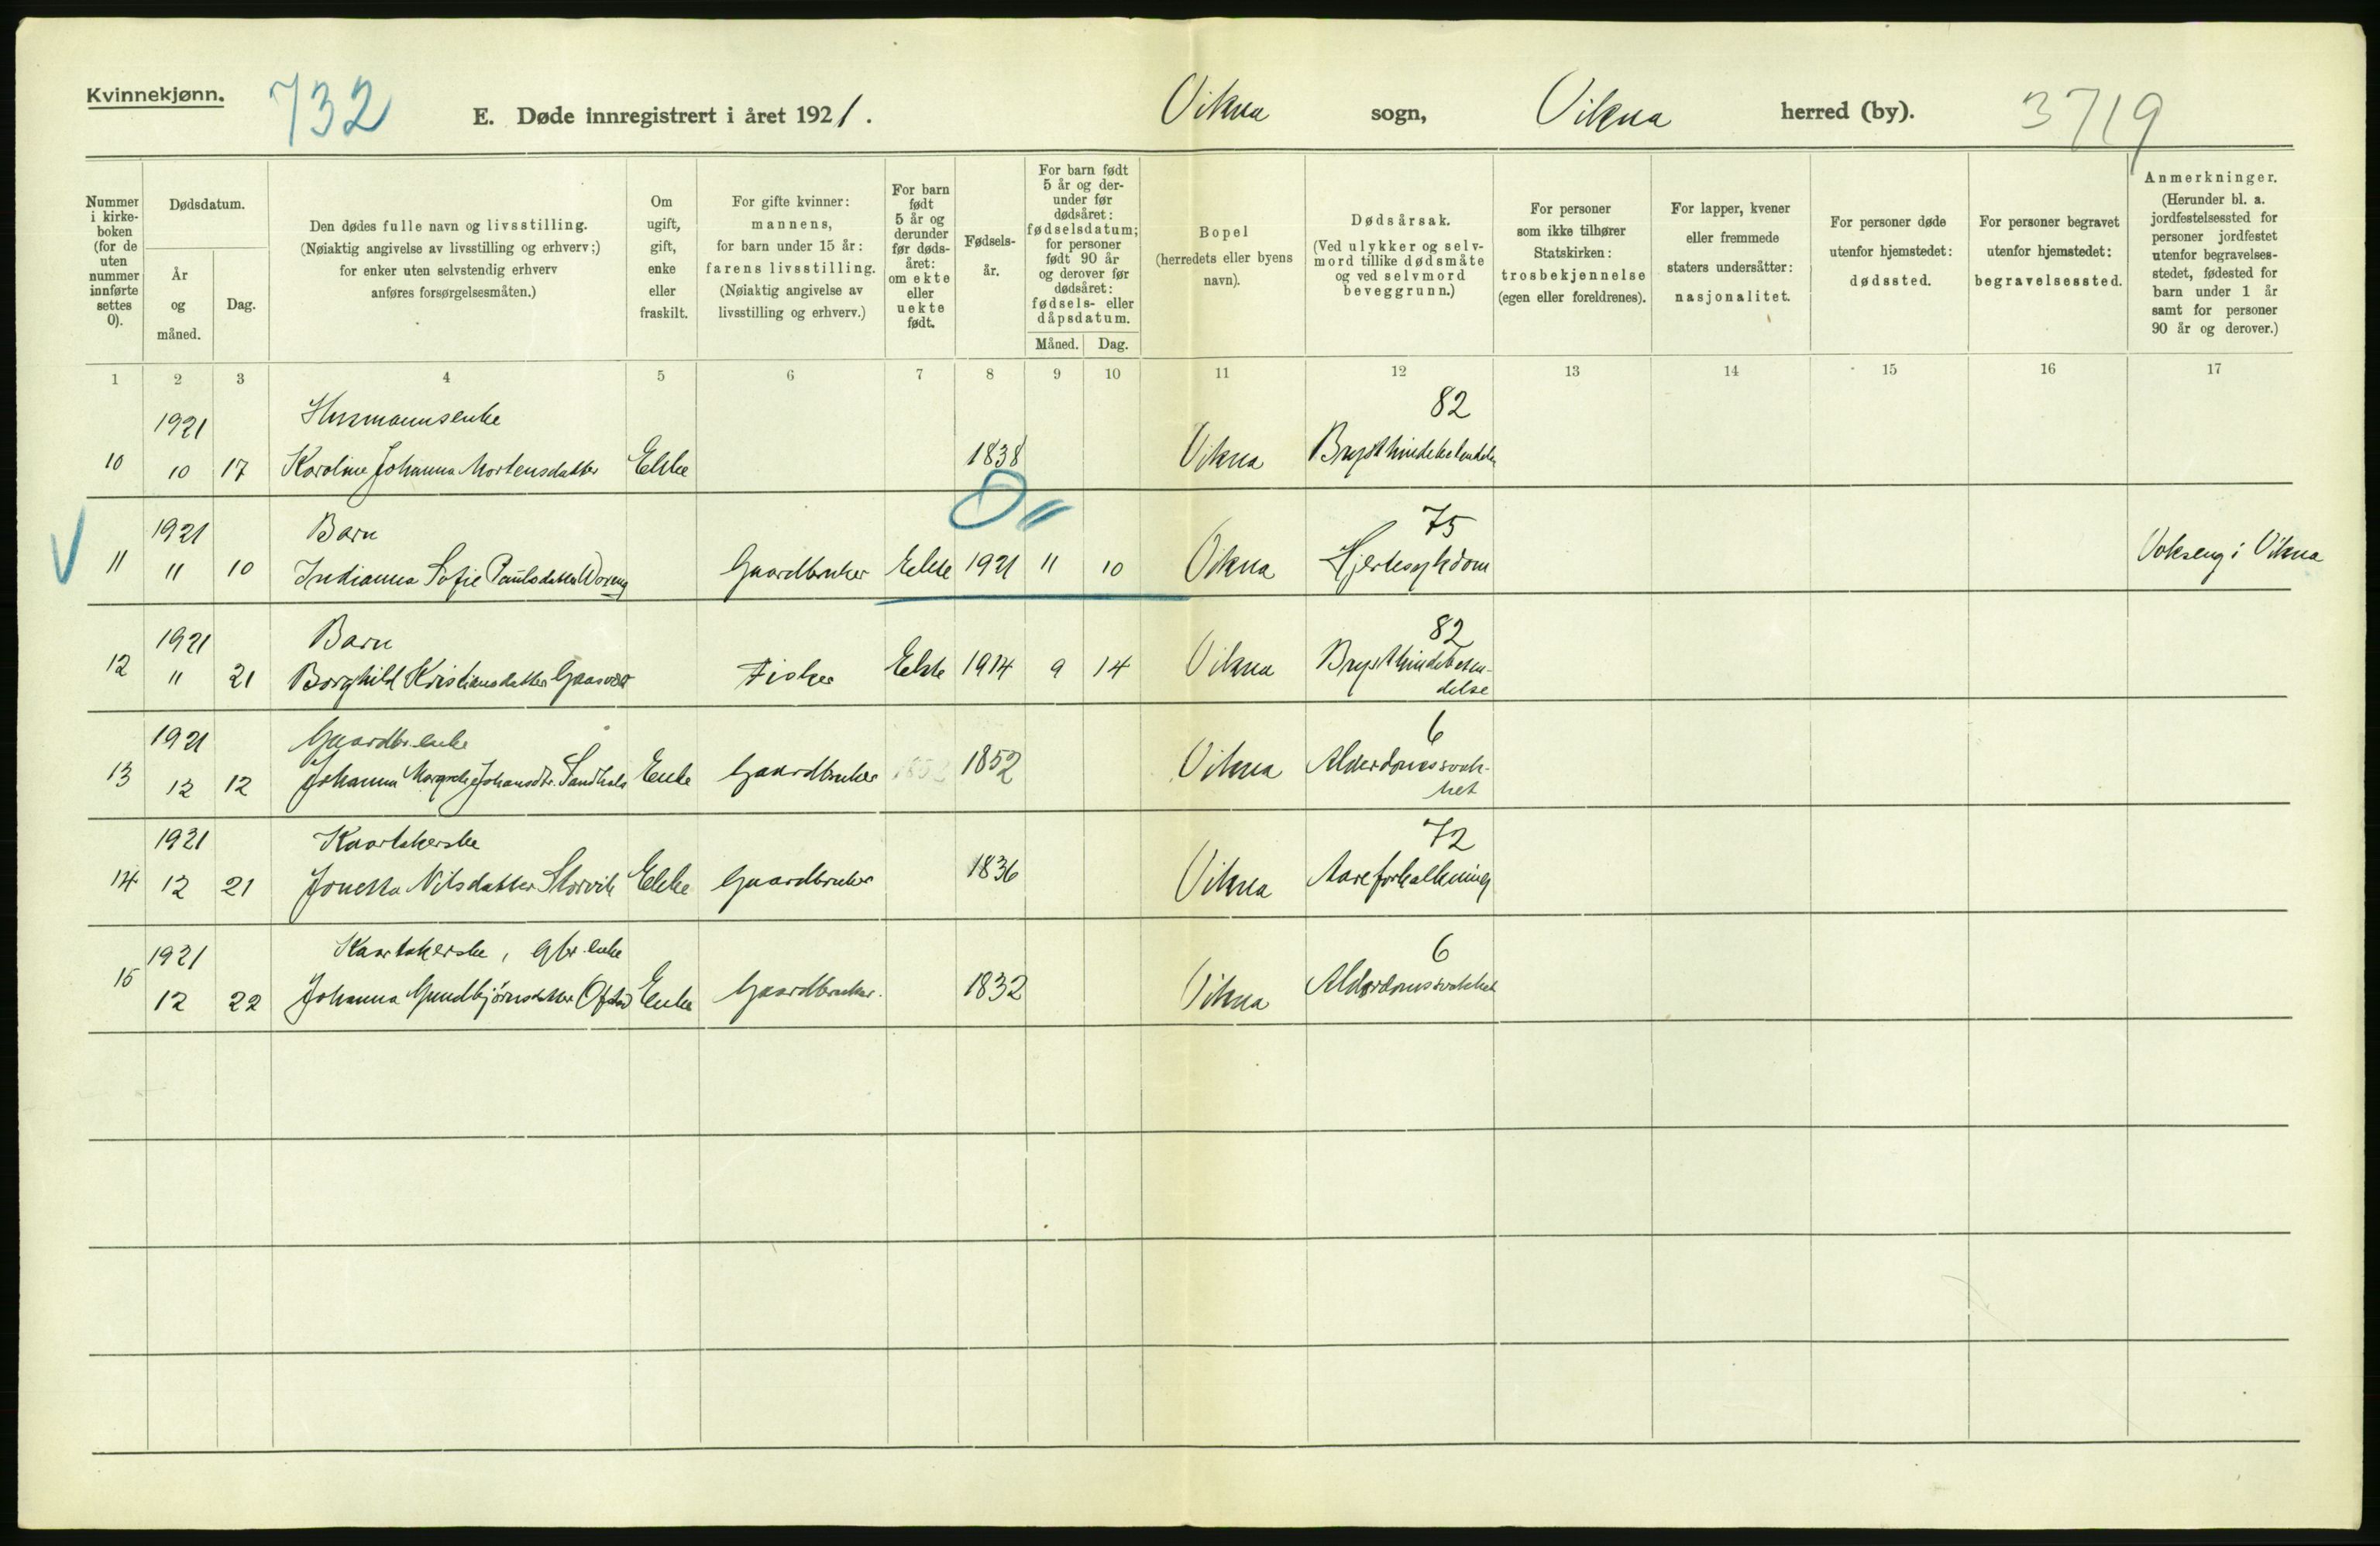 Kvinnekjønn.
732
E. Døde innregistrert i året 1921.
Vikna sogn, Vikna herred (by).
3719
Nummer i kirke-
boken
(for de
uten
nummer
innførte
settes
0).
Dødsdatum.
År
og
måned.
Dag.
Den dødes fulle navn og livsstilling.
(Nøiaktig angivelse av livsstilling og erhverv;)
for enker uten selvstendig erhverv
anføres forsørgelsesmåten.)
Om
ugift,
gift,
enke
eller
fraskilt.
For gifte kvinner:
mannens,
for barn under 15 år:
farens livsstilling.
(Nøiaktig angivelse av
livsstilling og erhverv.)
For barn
født
5 år og
derunder
før døds-
året:
om ekte
eller
uekte
født.
Fødsels-
år.
For barn født
5 år og der-
under før
dødsåret:
fødselsdatum;
for personer
født 90 år
og derover før
dødsåret:
fødsels- eller
dåpsdatum.
Måned. Dag.
Bopel
(herredets eller byens
navn).
Dødsårsak.
(Ved ulykker og selv-
mord tillike dødsmåte
og ved selvmord
beveggrunn.)
For personer
som ikke tilhører
Statskirken:
trosbekjennelse
(egen eller foreldrenes).
For lapper, kvener
eller fremmede
staters undersåtter:
nasjonalitet.
For personer døde
utenfor hjemstedet:
dødssted.
For personer begravet
utenfor hjemstedet:
begravelsessted.
Anmerkninger.
(Herunder bl. a.
jordfestelsessted for
personer jordfestet
utenfor begravelses-
stedet, fødested for
barn under 1 år
samt for personer
90 år og derover.)
1 2 3 4 5 6 7 8 9 10 11 12 13 14 15 16 17
1921 Husmannsenke 82
10 10 17 Karoline Johanna Mortensdatter Enke 1838 Vikna
0 "
1921 Barn 75
11 11 10 Indianna Sofie Paulsdatter Gaardbruker Ekte 1921 11 10 Vikna Hjertesykdom i Vikna
1921 Barn 82
12 11 21 Borghild Kristiansdatter Fisker Ekte 1914 9 14 Vikna Brysthindebeten-
delse
1921 Gaardbr.enke 6
13 12 12 Johanna Margrete Johansdtr. Enke Gaardbruker 1852 1852 Vikna Alderdomssvak-
het
1921 Kaartakerske 72
14 12 21 Jonetta Nilsdatter Storvik Enke Gaardbruker 1836 Vikna Aareforkalkning
1921 Kaartakerske, gbr.enke 6
15 12 22 Johanna Gundbjørnsdatter Enke Gaardbruker. 1832 Vikna Alderdomssvakhet